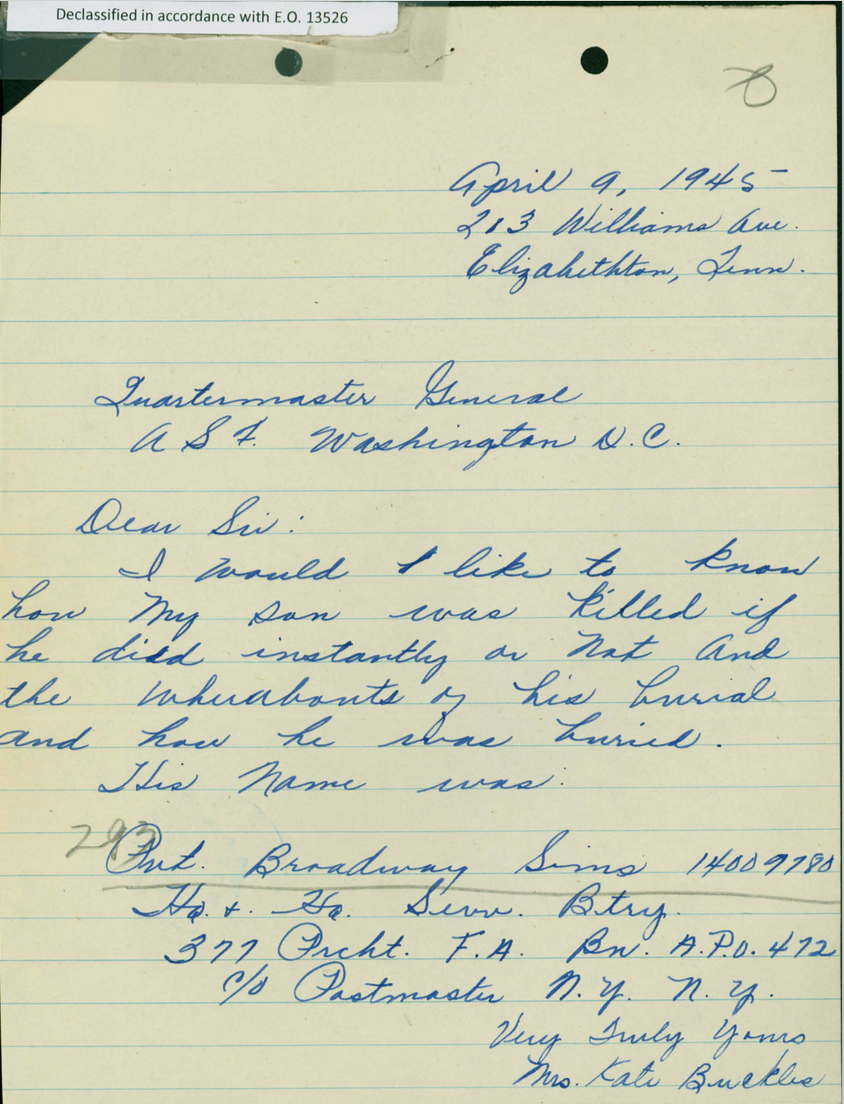 Declassified in accordance with E.O. 13526
8
April 9, 1945
213 Williams Ave.
Elizabethton, Tenn.
Quartermaster General
A S F. Washington D.C.
Dear Sir:
I would like to know
how My son was killed if
he died instantly or Not And
the wherabouts of his burial
and how he was buried.
His Name was:
293
Pvt. Broadway Sims 14009780
Hq. + Hq. Serv. Btry.
377 Prcht. F.A. Bn. A.P.O. 472
c/o Postmaster N.Y. N.Y.
Very Truly Yours
Mrs. Kate Buckles